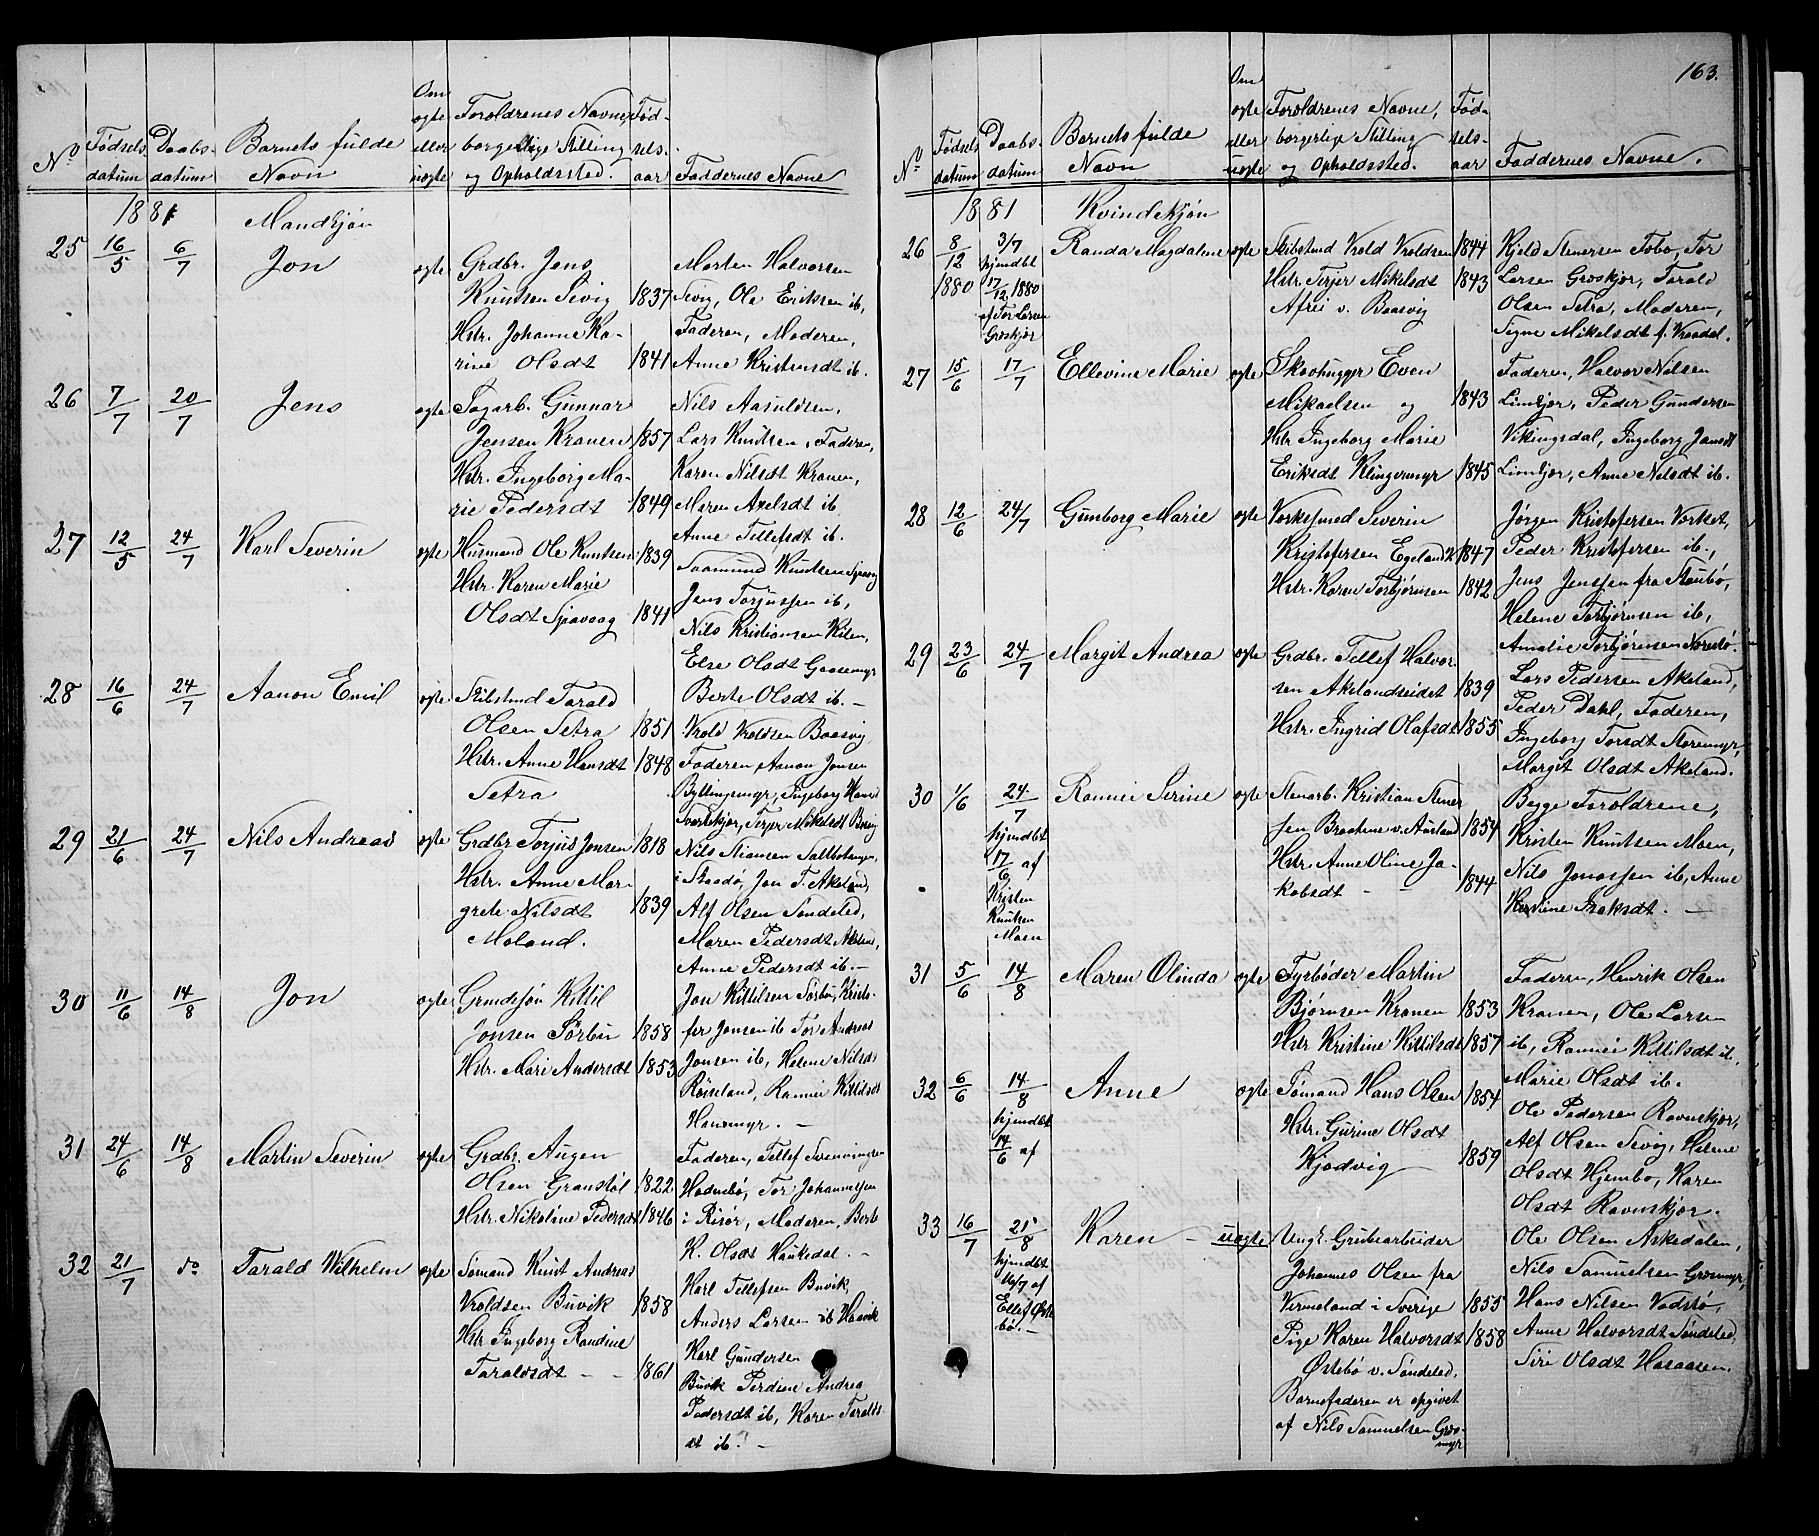 163.
No
Fødsels
datum
Daabs-
datum
Barnets fulde
Navn
Om
ægte
eller
uægte
Forældrenes Navne,
borgerlige Stilling
og Opholdssted.
Fød-
sels-
aar
Faddernes Navne
1881
Mandkjøn
25 16/5 6/7 Jon ægte
Grdbr. Jens
Knutsen Sivig 1837
Hstr. Johanne Ka-
rine Olsdt 1841
Morten Halvorsen
Sevig, Ole Eriksen ib,
Faderen, Moderen,
Anne Kristensdt ib.
26 7/7 20/7 Jens ægte
Sagarb. Gunnar
Jensen Kranen 1857
Hstr. Ingeborg Ma-
rie Pedersdt 1849
Nils Aasuldsen,
Lars Knutsen, Faderen,
Karen Nilsdt Kranen,
Maren Axelsdt ib
Anne Tellefsdt ib.
27 12/5 24/7 Karl Severin ægte
Husmand Ole Knutsen 1839
Hstr. Karen Marie
Olsdt Spavaag 1841
Saamund Knutsen Spavag
Jens Torjussen ib,
Nils Kristiansen Kilen,
Else Olsdt Gaasemyr
Berte Olsdt ib. –
28 16/6 24/7 Aanon Emil ægte
Skibstmd Tarald
Olsen Setra 1851
Hstr. Anne Hansdt 1848
Setra
Vrold Vroldsen Baasvig
Faderen, Aanon Jensen
Byllingsmyr, Ingeborg Hansd
Svartekjær, Terjer Mikelsdt Basvig
29 21/6 24/7 Nils Andreas ægte
Grdbr Torjus Jonsen 1818
Hstr. Anne Mar-
grete Nilsdt 1839
Moland.
Nils Stiansen Saltbotangen
i Skaadø, Jon T. Akeland,
Alf Olsen Søndeled,
Maren Pedersdt Akeland,
Anne Pedersdt ib. –
30 11/6 14/8 Jon ægte
Grndejør Kittil
Jonsen Sørbu 1858
Hstr. Mari Andersdt 1853
Jon Kittilsen Sørbu, Kristo-
fer Jonsen ib Tor Andreas
Jonsen ib, Helene Nilsdt
Røinland, Rannei Kittilsdt
Hansmyr. –
31 24/6 14/8 Martin Severin ægte
Grdbr. Augen
Olsen Granstøl 1822
Hstr. Nikoline Pedersdt 1846
Faderen, Tellef Svenningsen
Hødnebø, Tor Johannessen
i Risør, Moderen, Berte
K. Olsdt Haukedal. –
32 21/7 do Tarald Wilhelm ægte
Sømand Knut Andreas
Vroldsen Buvik 1858
Hstr Ingeborg Randine
Taraldsdt – – 1861
Karl Tellefsen Buvik,
Anders Larsen ib Haavik
Karl Gundersen
Buvik Perdine Andrea
Pedersdt ib, Karen Taralds-
dt ib. –
No
Fødsels
datum
Daabs-
datum
Barnets fulde
Navn
Om
ægte
eller
uægte
Forældrenes Navne,
borgerlige Stilling
og Opholdssted.
Fød-
sels-
aar
Faddernes Navne.
1881
Kvindekjøn
26 8/12 1880 3/7 Randa Magdalene ægte
hjmdbt
17/12 1880
af Tor Larsen
Groskjær
Skibstmd Vrold Vroldsen 1844
Hstr. Terjer Mikelsdt 1843
Afrei v. Baasvig
Kjeld Stenersen Fobo, Tor
Larsen Groskjær, Tarald
Olsen Setra, Moderen,
Signe Mikelsdt f. Vraadal.
27 15/6 17/7 Ellevine Marie ægte
Skovhugger Even
Mikaelsen og 1843
Hstr Ingeborg Marie
Eriksdt Klingermyr 1845
Faderen, Halvor Nilsen
Limkjær, Peder Gundersen
Vikingsdal, Ingeborg Jansdt
Limkjær, Anne Nilsdt ib.
28 12/6 24/7 Gunborg Marie ægte
Værksfmed Severin
Kristofersen Egeland V 1847
Hstr. Karen Torbjørnsen 1842
Jørgen Kristofersen Værket,
Peder Kristofersen ib.,
Jens Jenssen fra Staubø,
Helene Torbjørnsen ib,
Amalie Torbjørnsen Narestø.
29 23/6 24/7 Margit Andrea ægte
Grdbr. Tellef Halvor-
sen Akelandseidet 1839
Hstr. Ingrid Olafsdt 1855
Lars Pedersen Akeland,
Peder Dahl, Faderen,
Ingeborg Torsdt Storemyr,
Margit Olsdt Akeland.
30 1/6 24/7 Rannei Serine ægte
hjmdbt
17/6 af
Kristen
Knutsen
Moen
Stenarb. Kristian Stener-
sen Braatene v. Ausland 1854
Hstr. Anne Oline Ja-
kobsdt – – 1844
Begge Forældrene,
Kristen Knutsen Moen,
Nils Jonassen ib, Anne
Kirstine Isaksdt. –
31 5/6 14/8 Maren Olinda ægte
Fyrbøder Martin
Bjørnsen Kranen 1853
Hstr Kristine Kittilsdt 1857
Faderen, Henrik Olsen
Kranen, Ole Larsen
ib, Rannei Kittilsdt ib.
Marie Olsdt ib.
32 6/6 14/8 Anne ægte
hjmdbt
14/6 af
Sømand Hans Olsen 1854
Hstr. Gurine Olsdt
Kjødvig 1859
Ole Pedersen Ravnskjær,
Alf Olsen Sevig, Helene
Olsdt Hjembo, Karen
Olsdt Ravnskjær.
33 16/7 21/8 Karen – uægte
hjmdbt
16/7 af
Ellef Øste-
bø. –
Ungk. Grubearbeider
Johannes Olsen fra
Vermeland i Sverige 1855
Pige Karen Halvorsdt 1858
Østebø v. Søndeled.
Barnefaderen er opgivet
af Nils Samuelsen Græs-
myr
Ole Olsen Askedalen,
Nils Samuelsen Græsmyr,
Hans Nilsen Vadstø,
Anne Halvorsdt Søndeled
Siri Olsdt Hasaasen.